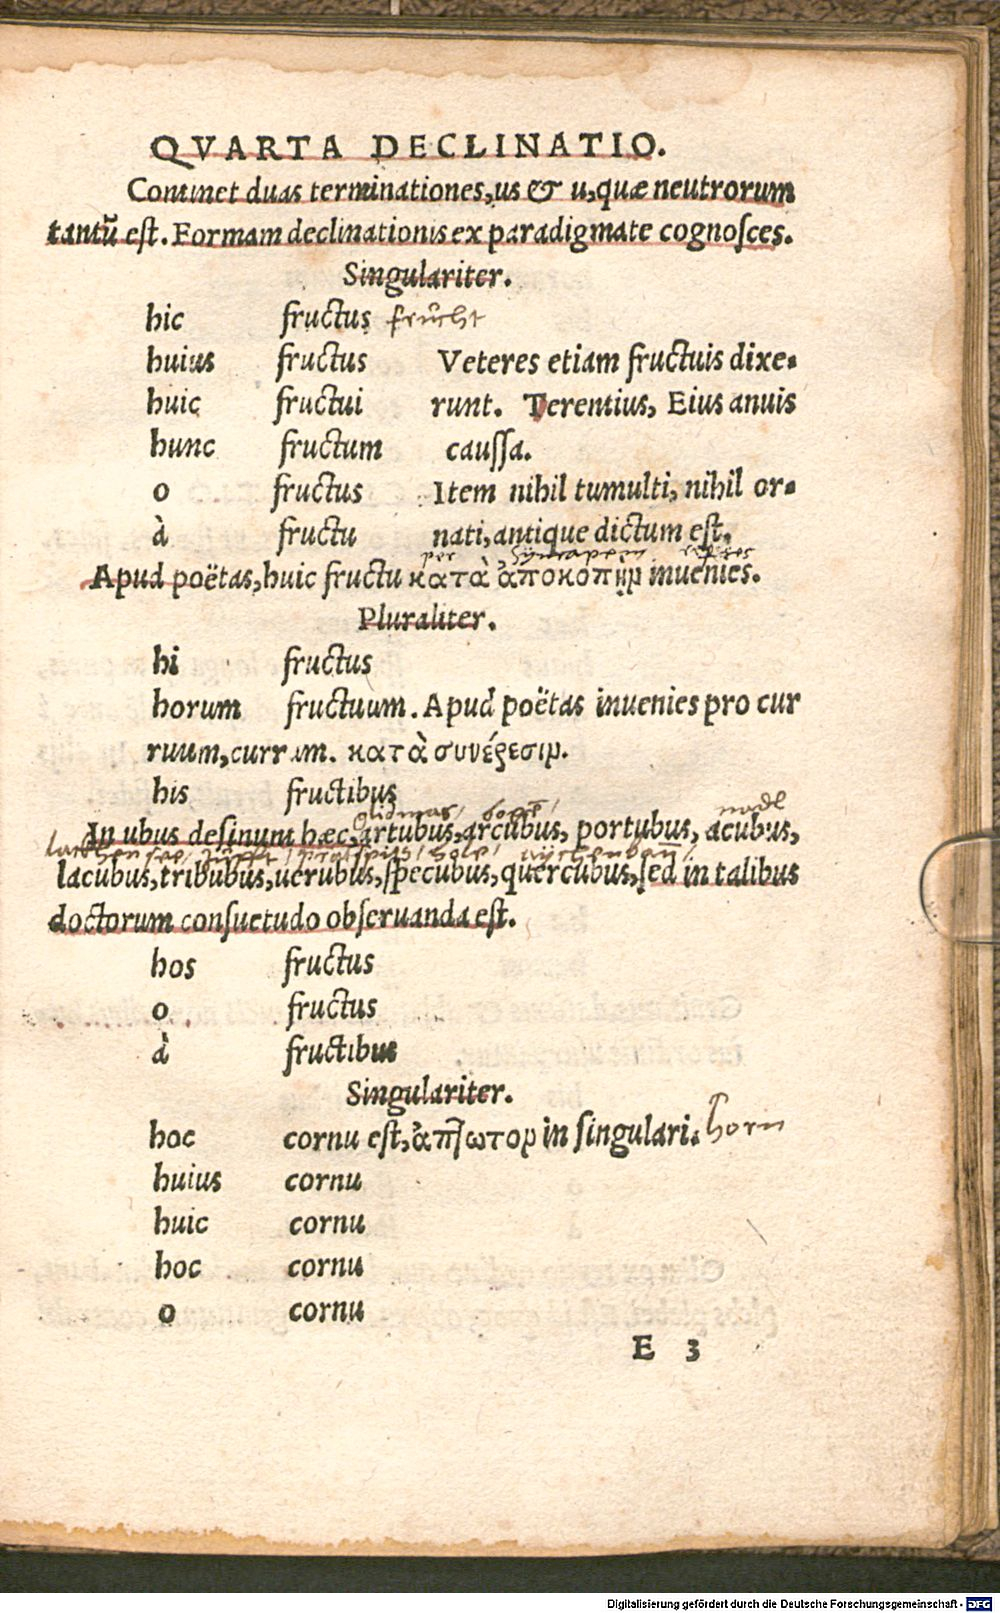 QVARTA DECLINATIO.
Continet duas terminationes, us & u, quæ neutrorum
tantũ est. Formam declinationis ex paradigmate cognosces.
Singulariter.
hic fructus frucht
huius fructus Veteres etiam fructuis dixe-
huic fructui runt. Terentius, Eius anuis
hunc fructum caussa.
o fructus Item nihil tumulti, nihil or-
à fructu nati, antique dictum est.
per
Apud poëtas, huic fructu κατὰ ἀποκοπὴν inuenies.
Pluraliter.
hi fructus
horum fructuum. Apud poëtas inuenies pro cur
ruum, currum. κατὰ συνέρεσιν.
his fructibus
glidmas / nadl
In ubus desinunt hæc, artubus, arcubus, portubus, acubus,
lacubus, tribubus, uerubus, specubus, quercubus, sed in talibus
doctorum consuetudo obseruanda est.
hos fructus
o fructus
à fructibus
Singulariter.
hoc cornu est, ἄπτωτον in singulari. horn
huius cornu
huic cornu
hoc cornu
o cornu
E 3
Digitalisierung gefördert durch die Deutsche Forschungsgemeinschaft - DFG